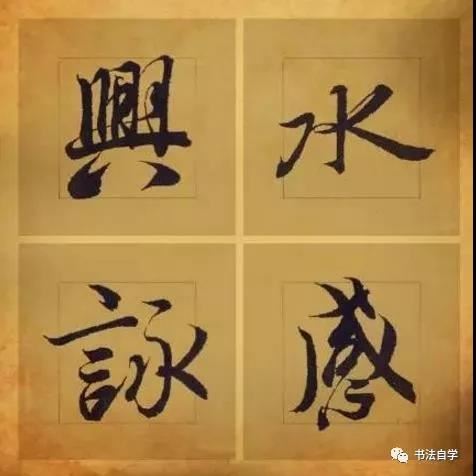 水感
興詠
书法自学